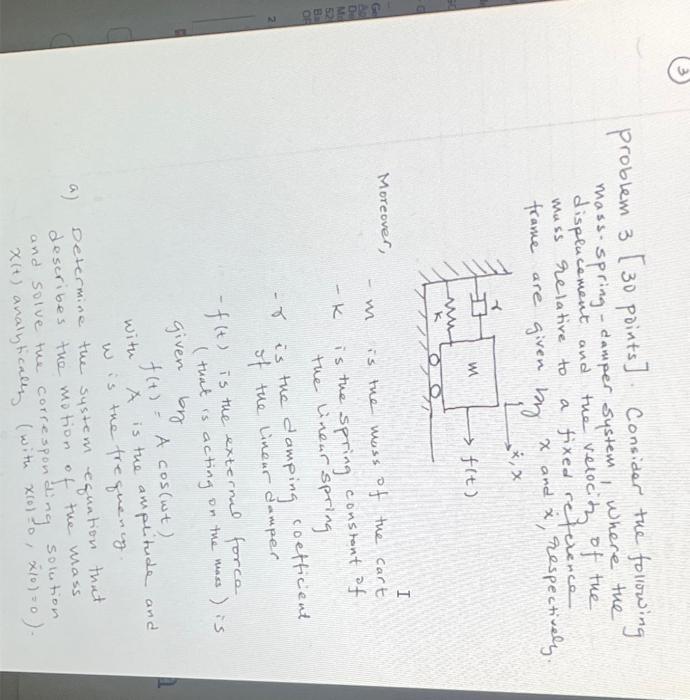 3
Problem 3 [30 points]. Consider the following
mass-spring-damper system, where the
displacement and the velocity of the
mass relative to a fixed reference
frame are given by x and ẋ, respectively.
ẋ, x
r
m
f(t)
k
Moreover, - m is the mass of the cart
- k is the spring constant of
the linear spring
- r is the damping coefficient
of the linear damper
- f(t) is the external force
(that is acting on the mass) is
given by
f(t) = A cos(wt),
with A is the amplitude and
w is the frequency.
a) Determine the system equation that
describes the motion of the mass
and solve the corresponding solution
x(t) analytically (with x(0)=0, ẋ(0)=0).
2